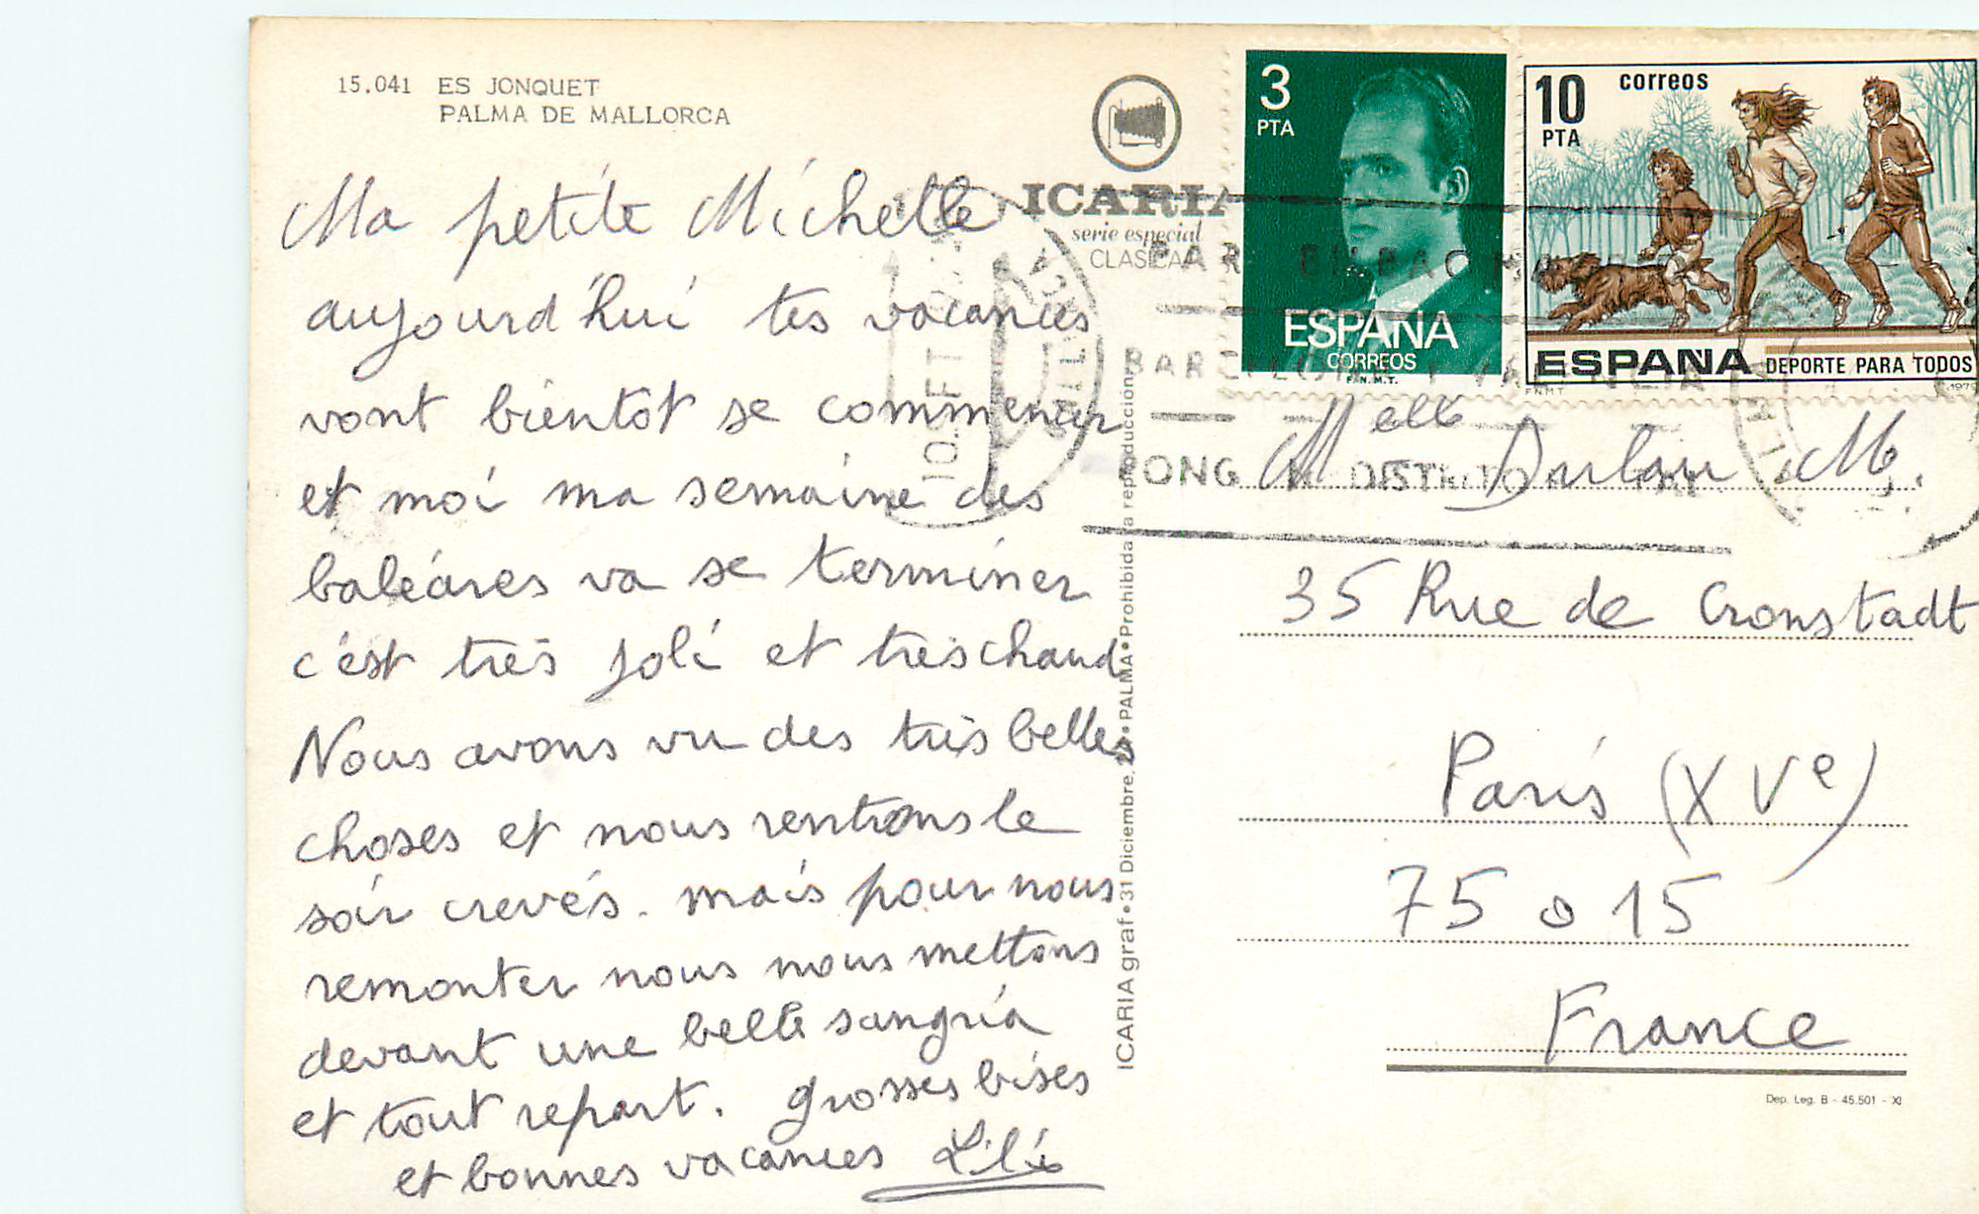 15.041 ES JONQUET
PALMA DE MALLORCA
ICARIA
serie especial
CLASICA
3
PTA
ESPAÑA
CORREOS
F.N.M.T.
10
PTA
correos
ESPAÑA DEPORTE PARA TODOS
FNMT
Ma petite Michelle
aujourd'hui tes vacances
vont bientôt se commencer
et moi ma semaine des
baléares va se terminer
c'est très joli et très chaud
Nous avons vu des très belles
choses et nous rentrons le
soir crevés. mais pour nous
remonter nous nous mettons
devant une belle sangria
et tout repart. grosses bises
et bonnes vacances Lili
ICARIA graf • 31 Diciembre, • PALMA • Prohibida la reproducción
Melle M.
35 Rue de Cronstadt
Paris (XVe)
75015
France
Dep. Leg. B - 45.501 - XI